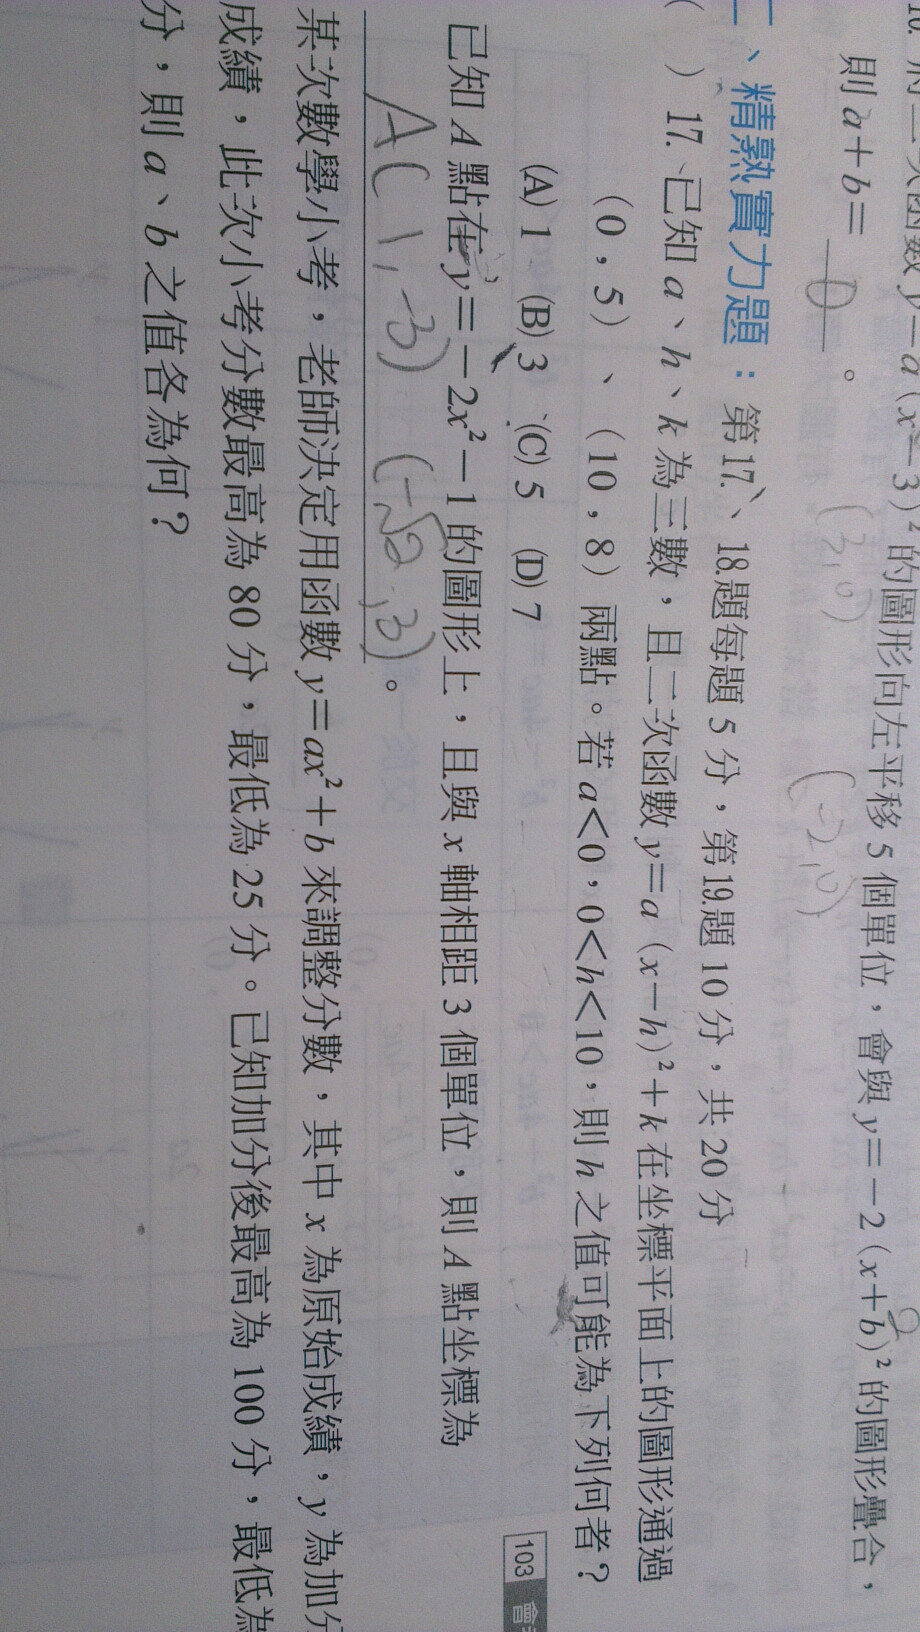 二次函數 y=a(x-3)²的圖形向左平移 5 個單位,會與 y=-2(x+b)²的圖形疊合,
則 a+b= 0 。
(3,0) (-2,0)
二、精熟實力題:第17.、18.題每題 5 分,第19.題 10 分,共 20 分
( ) 17. 已知 a、h、k 為三數,且二次函數 y=a(x-h)²+k 在坐標平面上的圖形通過
(0,5)、(10,8)兩點。若 a<0,0<h<10,則 h 之值可能為下列何者?
(A) 1 (B) 3 (C) 5 (D) 7
已知 A 點在 y=-2x²-1 的圖形上,且與 x 軸相距 3 個單位,則 A 點坐標為
A(1,-3) (-√2,3) 。
某次數學小考,老師決定用函數 y=ax²+b 來調整分數,其中 x 為原始成績,y 為加
成績,此次小考分數最高為 80 分,最低為 25 分。已知加分後最高為 100 分,最低為
分,則 a、b 之值各為何?
103